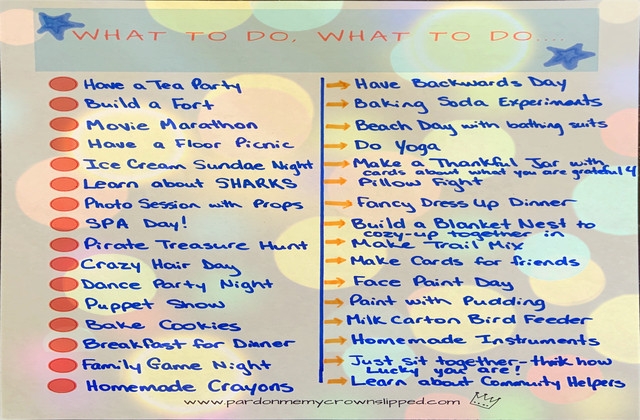 WHAT TO DO, WHAT TO DO....
Have a Tea Party
Build a Fort
Movie Marathon
Have a Floor Picnic
Ice Cream Sundae Night
Learn about SHARKS
Photo Session with Props
SPA Day!
Pirate Treasure Hunt
Crazy Hair Day
Dance Party Night
Puppet Show
Bake Cookies
Breakfast for Dinner
Family Game Night
Homemade Crayons
Have Backwards Day
Baking Soda Experiments
Beach Day with bathing suits
Do Yoga
Make a Thankful Jar with
cards about what you are grateful 4
Pillow Fight
Fancy Dress Up Dinner
Build a Blanket Nest to
cozy-up together in
Make Trail Mix
Make Cards for friends
Face Paint Day
Paint with Pudding
Milk Carton Bird Feeder
Homemade Instruments
Just sit together-thik how
Lucky you are!
Learn about Community Helpers
www.pardonmemycrownslipped.com